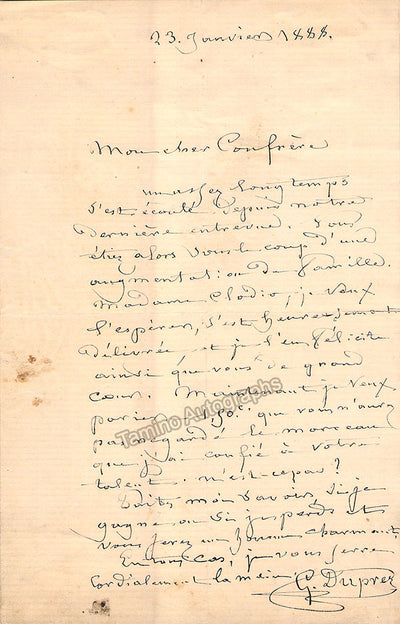 23. Janvier 1888.
Mon cher Confrère
un assez long temps
s'est écoulé depuis notre
dernière entrevue. Vous
étiez alors sous le coup d'une
augmentation de famille.
Madame Clodio, je veux
l'espérer, s'est heureusement
délivrée, et je l'en félicite
ainsi que vous de grand
cœur. Maintenant je veux
parier que vous n'avez
pas regardé le morceau
que j'ai confié à votre
talent. n'est-ce pas?
Faites moi savoir, si je
gagne ou si je perds et
vous serez un homme charmant.
En tous cas, je vous serre
cordialement la main. G. Duprez
Tamino Autographs